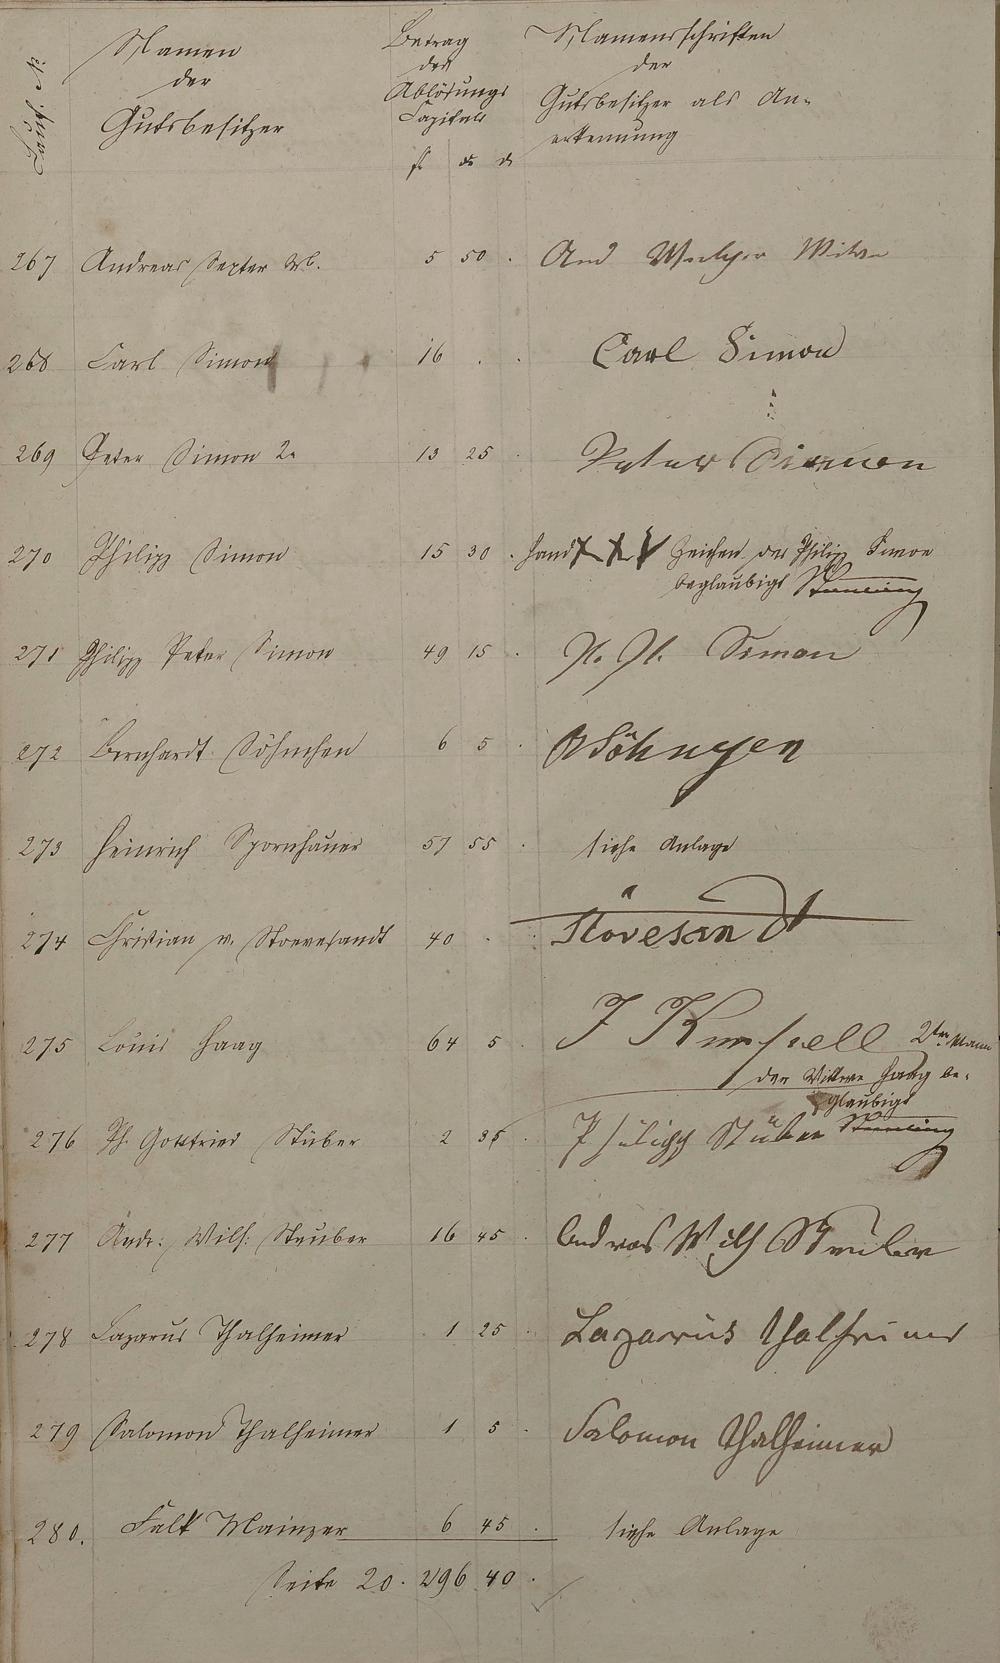 Namen
der
Gutsbesitzer
Betrag
des
Ablösungs
Capitals
fl x d
Namensschriften
der
Gutsbesitzer als An-
erkennung
267 Andreas Wb. 5 50 . And Witwe
268 Carl Simon 16 . . Carl Simon
269 Peter Simon 2r 13 25 . Peter Simon
270 Philipp Simon 15 30 . Hand XXX Zeichen des Philipp Simon
beglaubigt
271 Philipp Peter Simon 49 15 . Simon
272 Bernhardt Söhnchen 6 5 . B Söhngen
273 Heinrich Spornhauer 57 55 . siehe Anlage
274 Christian v. Stoevesandt 40 . . Stövesandt
275 Louis Haag 64 5 . 2ter Mann
der Wittwe Haag be-
glaubigt
276 Ph. Gottfried Stüber 2 35 . Philipp Stüber
277 Andr: Wilh: Steuber 16 45 . Andreas Wilh Steuber
278 Lazarus Thalheimer 1 25 . Lazarus Thalheimer
279 Salomon Thalheimer 1 5 . Salomon Thalheimer
280. Falk Mainzer 6 45 . siehe Anlage
Seite 20 . 296 40 .